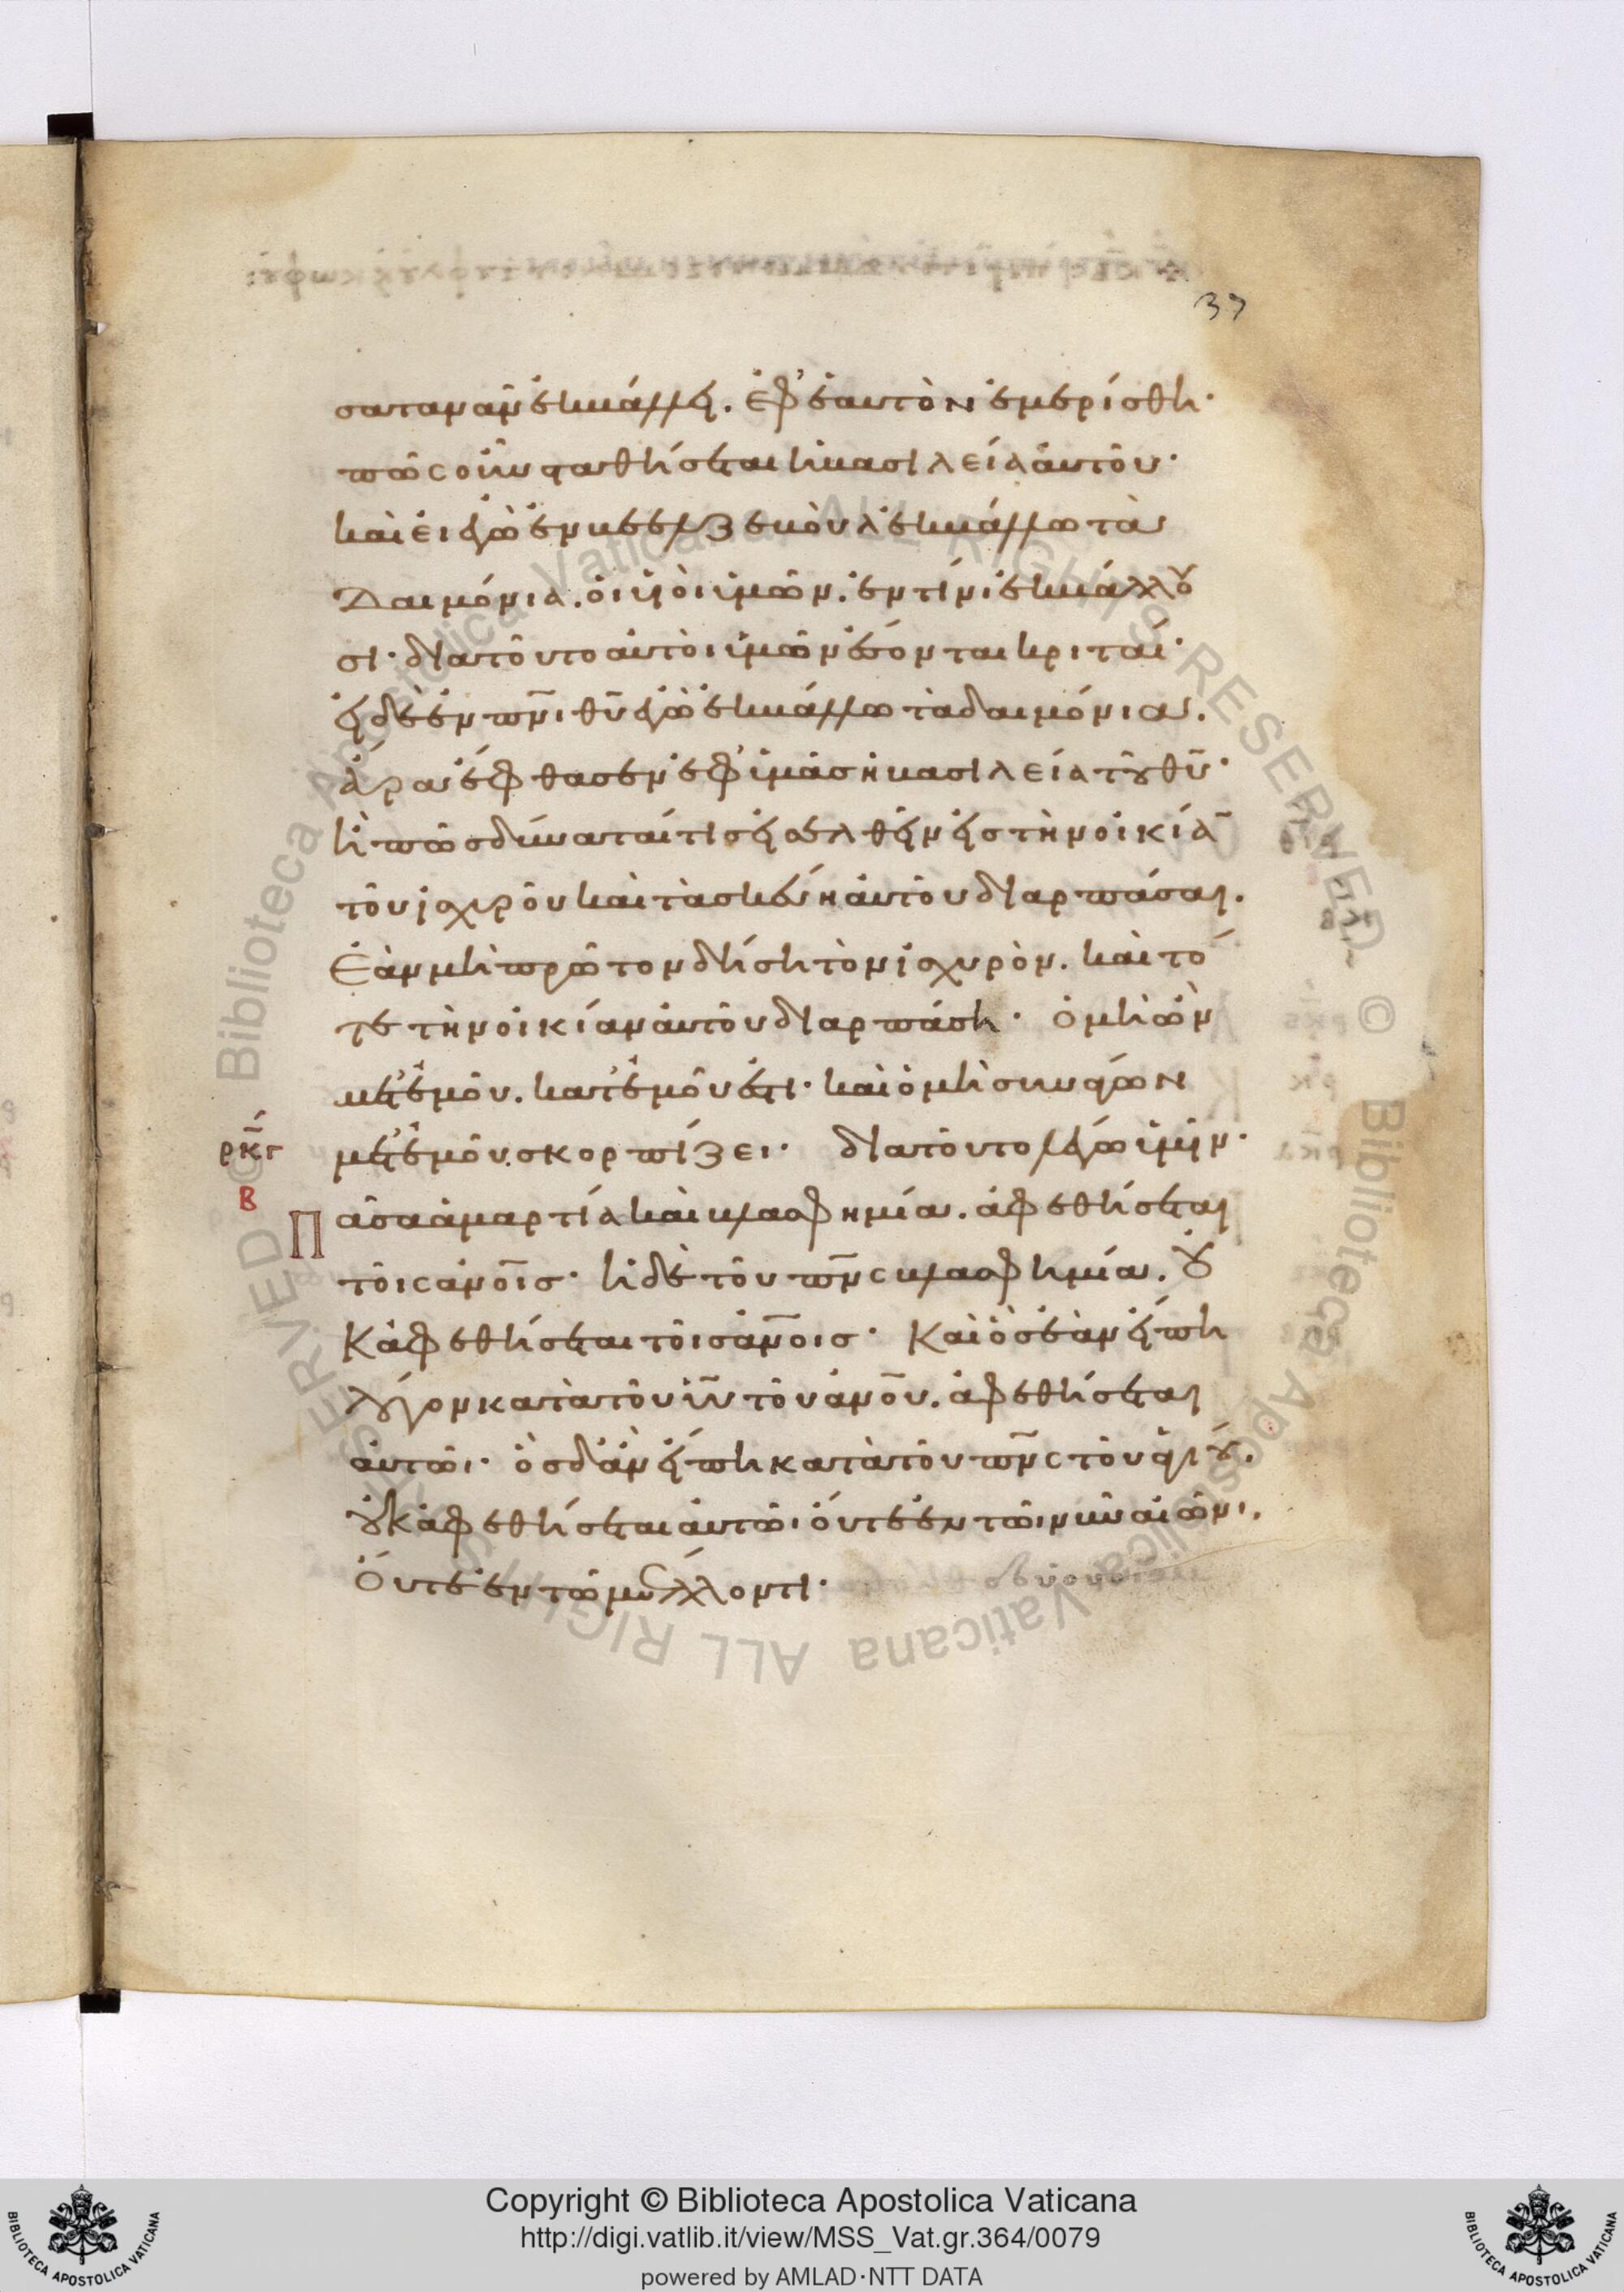 37
σαταναν εκβάλλει. ἐφ' ἑαυτὸν ἐμερίσθη·
πῶς οὖν σταθήσεται ἡ βασιλεία αὐτοῦ·
καὶ εἰ ἐγὼ ἐν βεελζεβοὺλ ἐκβάλλω τὰ
Δαιμόνια. οἱ υἱοὶ ὑμῶν. ἐν τίνι ἐκβάλλου
σι· διατοῦτο αὐτοὶ ὑμῶν ἔσονται κριταί·
εἰ δὲ ἐν πν̅ι θυ̅ ἐγὼ ἐκβάλλω τὰ δαιμόνια.
ἄρα ἔφθασεν ἐφ' ὑμᾶς ἡ βασιλεία τοῦ θυ̅·
ἢ πῶς δύναταί τις εἰσελθεῖν εἰς τὴν οἰκία̅
τοῦ ἰσχυροῦ καὶ τὰ σκεύη αὐτοῦ διαρπάσαι.
Ἐὰν μὴ πρῶτον δήσῃ τὸν ἰσχυρὸν. καὶ τό
τε τὴν οἰκίαν αὐτοῦ διαρπάσῃ· ὁ μὴ ὢν
μετ' ἐμοῦ. κατ' ἐμοῦ ἐστι· καὶ ὁ μὴ συνάγων
ρκγ μετ' ἐμοῦ. σκορπίζει· διατοῦτο λέγω ὑμῖν·
Β
Πᾶσα ἁμαρτία καὶ βλασφημία. ἀφεθήσεται
τοῖς ἀνο̅ις· ἡ δὲ τοῦ πν̅ς βλασφημία. οὐ
Κ ἀφεθήσεται τοῖς ἀν̅οις· Καὶ ὃς ἐὰν εἴπῃ
λόγον κατὰ τοῦ υυ̅ τοῦ ἀνο̅υ. ἀφεθήσεται
αὐτῶι· ὃς δ' ἂν εἴπῃ κατὰ τοῦ πν̅ς τοῦ ἁγίου.
οὐκ ἀφεθήσεται αὐτῶι· οὔτε ἐν τῶι νῦν αἰῶνι.
Οὔτε ἐν τῶ μέλλοντι·
Copyright © Biblioteca Apostolica Vaticana
http://digi.vatlib.it/view/MSS_Vat.gr.364/0079
powered by AMLAD·NTT DATA